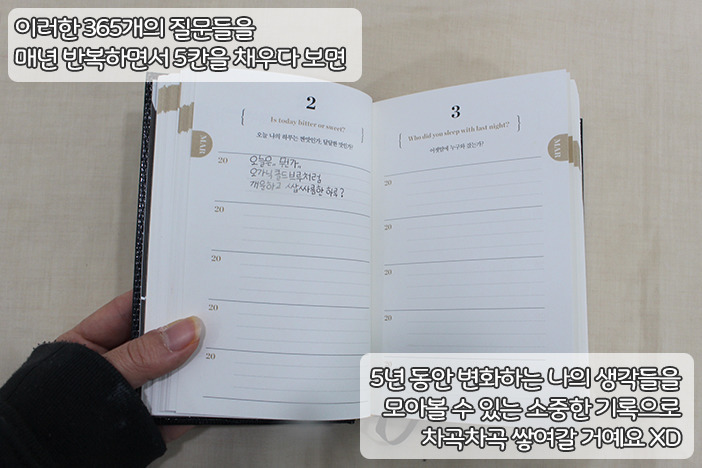 이러한 365개의 질문들을
매년 반복하면서 5칸을 채우다 보면
2
Is today bitter or sweet?
오늘 나의 하루는 쓴맛인가, 달달한 맛인가?
MAR
20
오늘은.. 뭔가..
오가닉 콜드브루처럼
개운하고 쌉싸름한 하루?
20
20
20
20
3
Who did you sleep with last night?
어젯밤에 누구와 잤는가?
MAR
20
20
20
20
20
5년 동안 변화하는 나의 생각들을
모아볼 수 있는 소중한 기록으로
차곡차곡 쌓여갈 거예요 XD